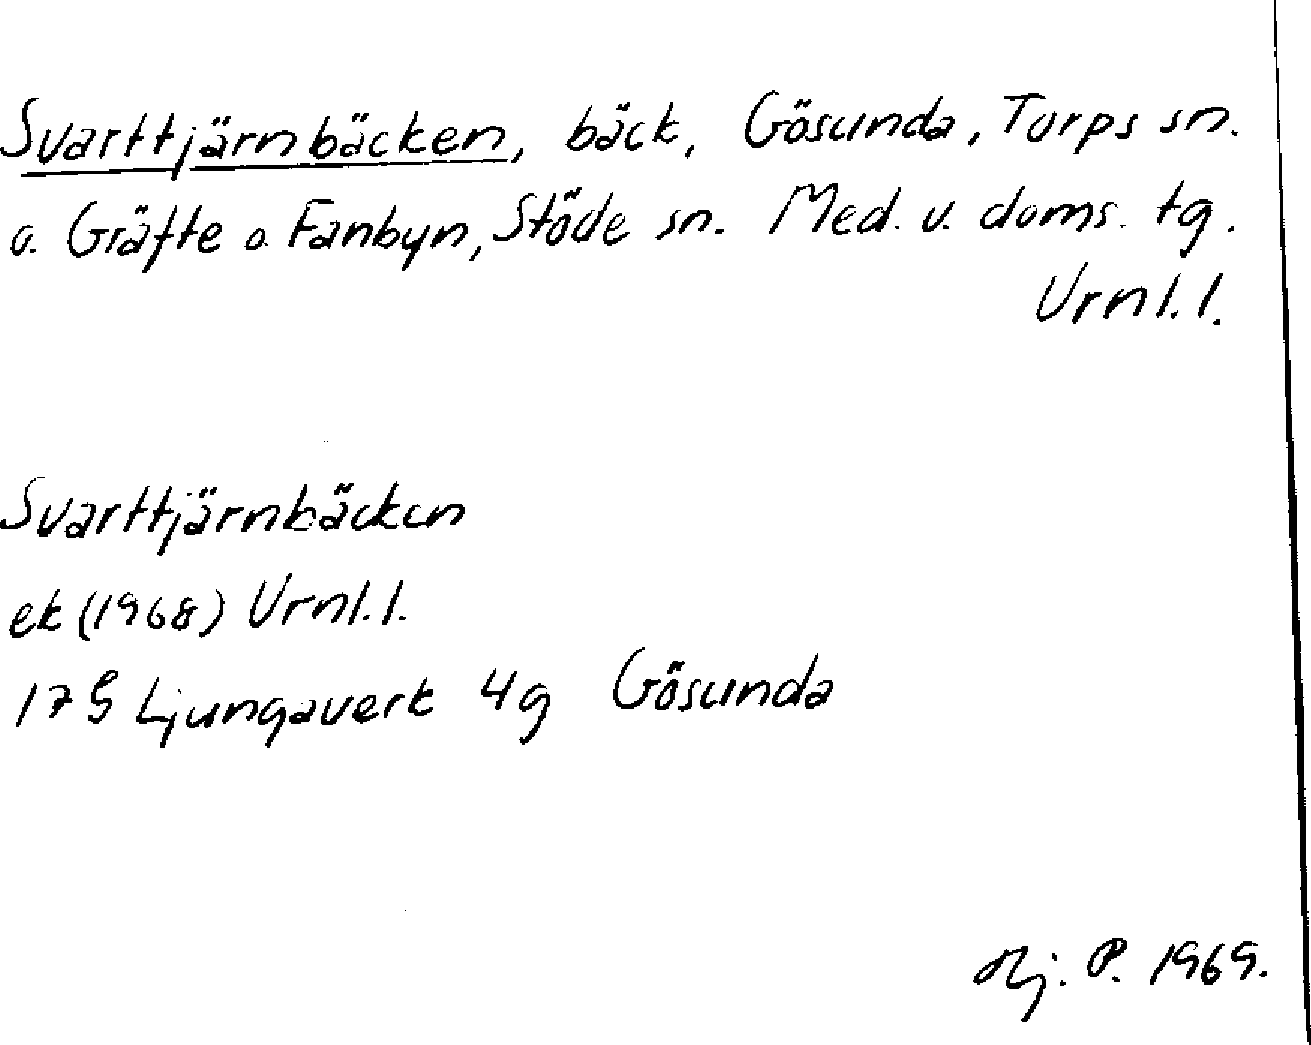 Svarttjärnbäcken, bäck, Gösunda, Torps sn.
o. Gräfte o. Fanbyn, Stöde sn. Med. v. doms. tg.
Urnl. l.
Svarttjärnbäcken
ek (1968) Urnl. l.
17G Ljungaverk 4g Gösunda
Hj. P. 1969.